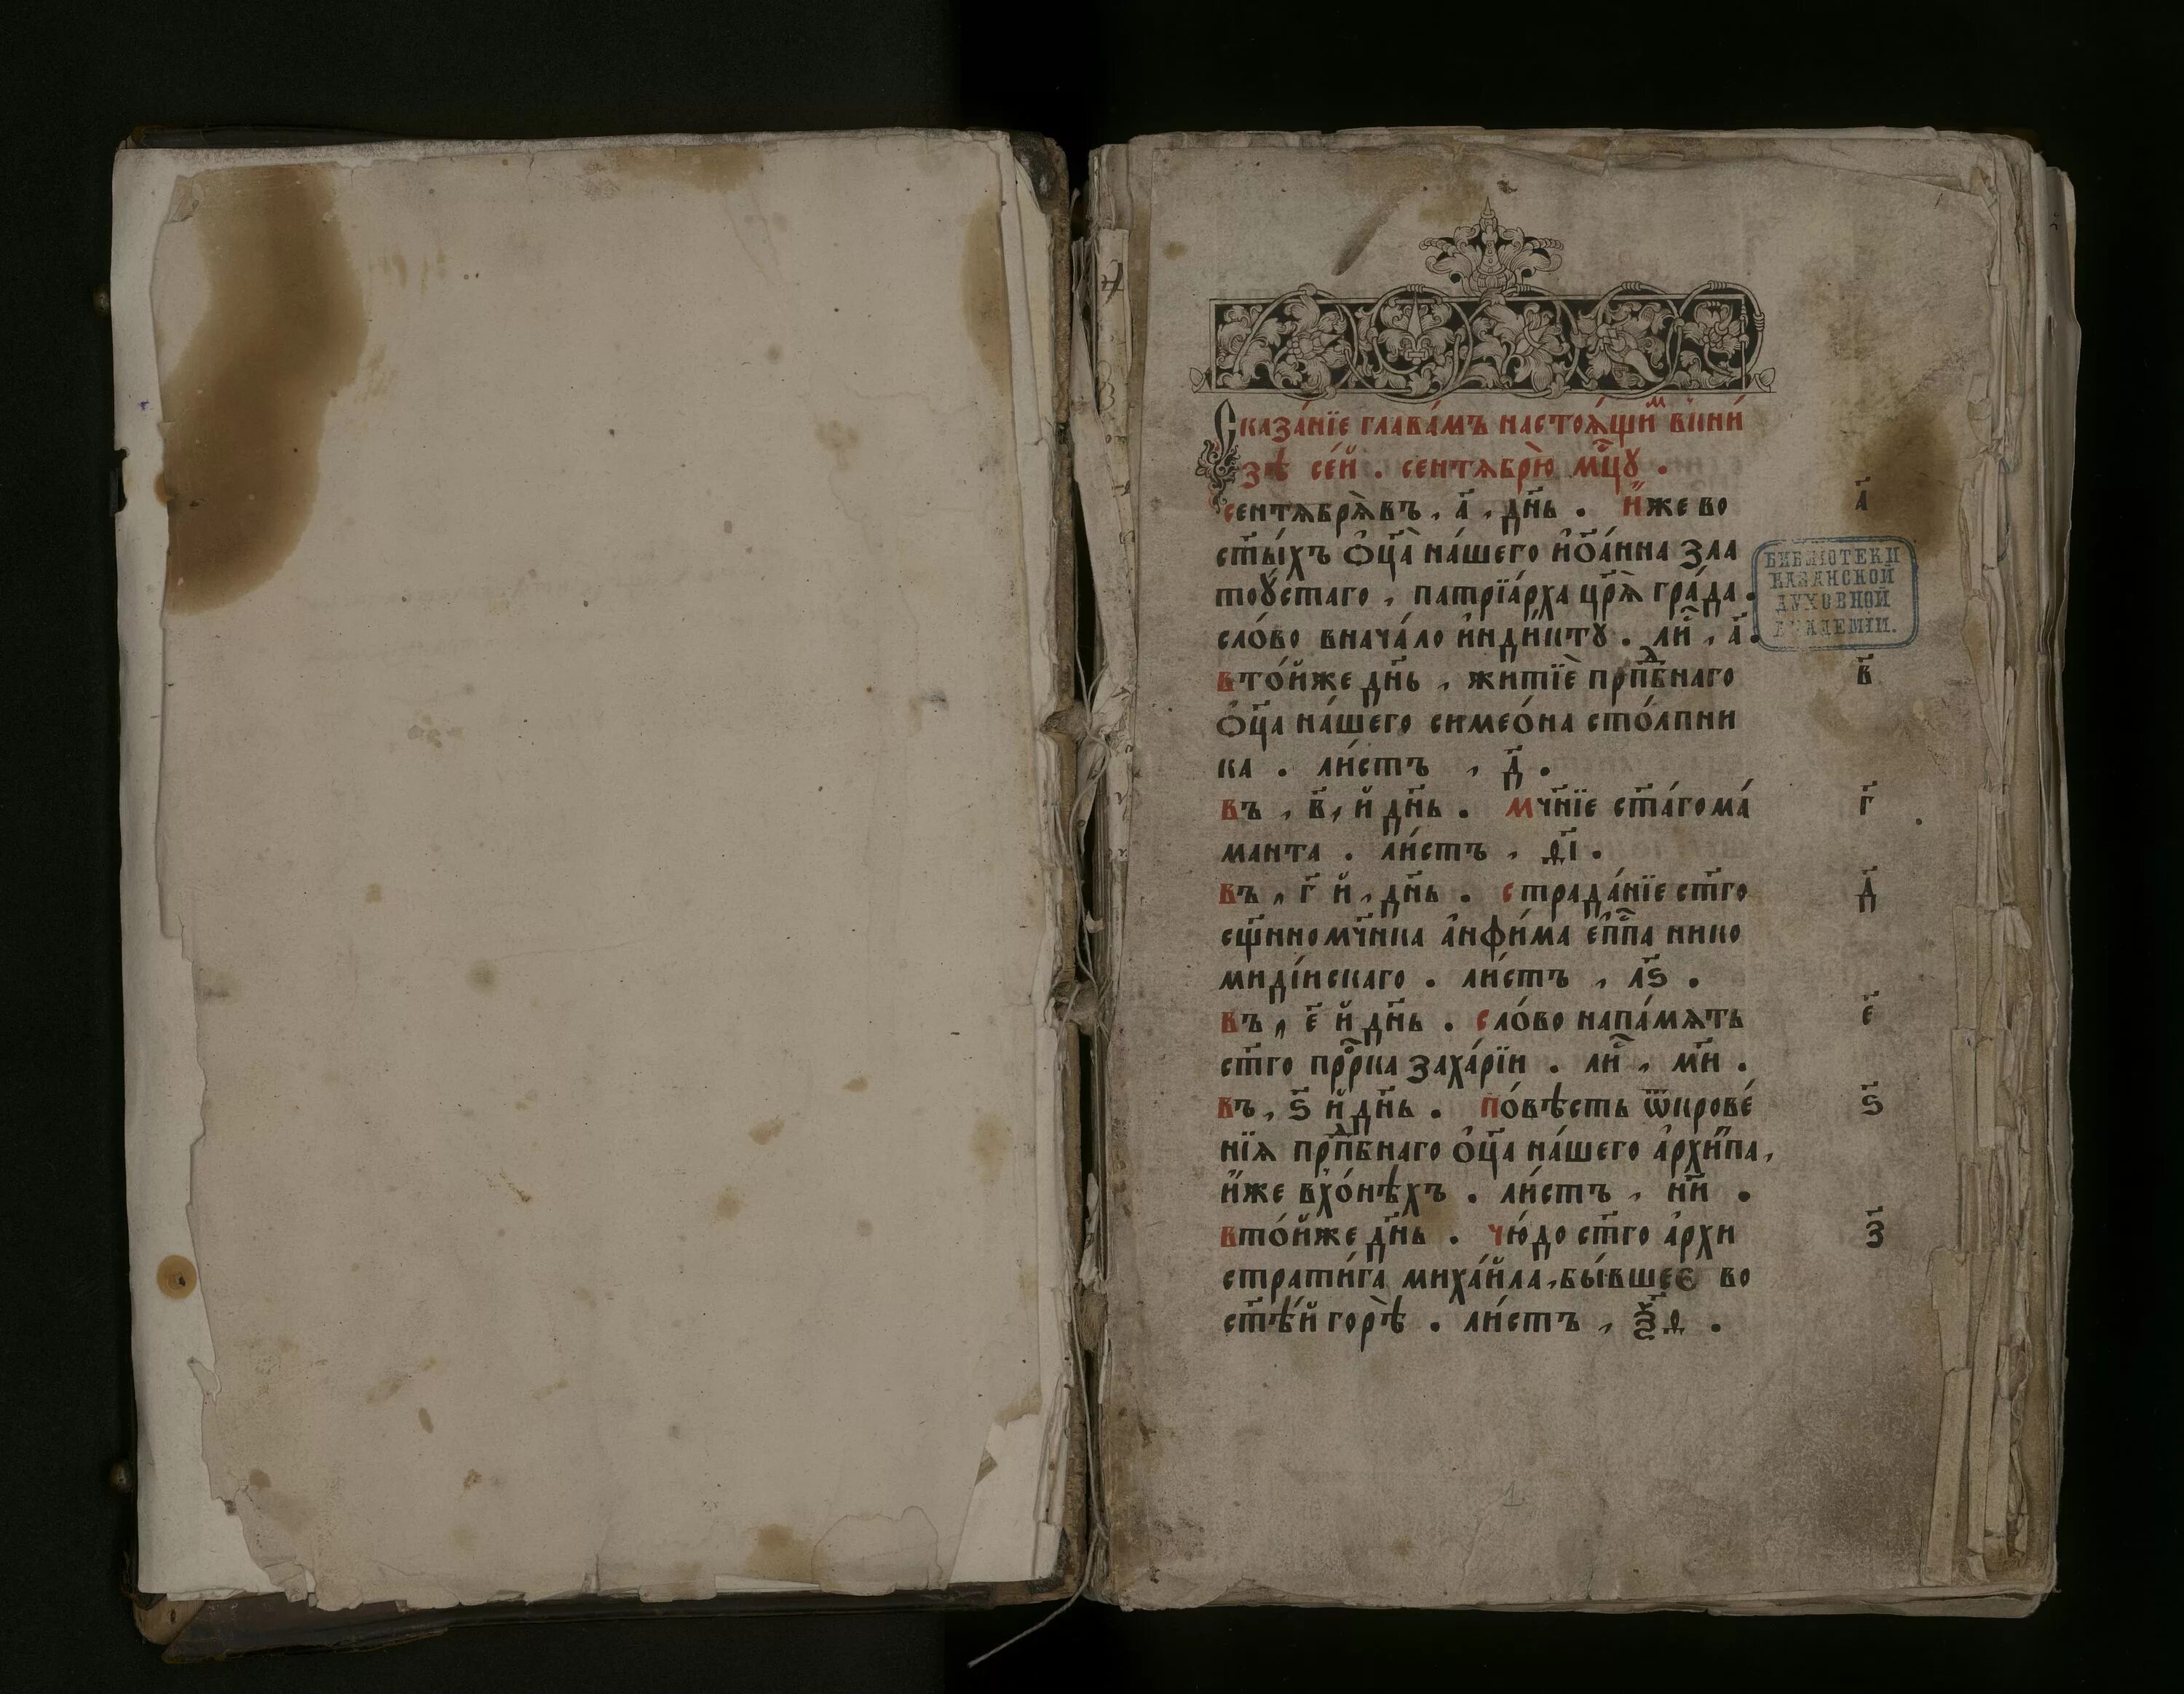 Сказа́нїе глава́мъ настоѧ́щиⷨ вкни́
зѣ се́й . сентѧбрі́ю мⷭ҇цꙋ .
сентѧбрѧ̀ въ , а҃ , дн҃ь . и҆́же во
ст҃ы́хъ ѻ҆ц҃а̀ на́шего иѡ҃а́нна зла
тоꙋ́стаго , патрїа́рха цр҃ѧ̀ гра́да .
сло́во внача́ло инди́ктꙋ . лиⷭ҇ , а҃ .
вто́йже дн҃ь , житїѐ прпⷣбнаго
ѻ҆ц҃а на́шего симео́на сто́лпни
ка . ли́стъ , д҃ .
въ , в҃ , й дн҃ь . мч҃нїе ст҃а́го ма́
манта . ли́стъ , д҃і .
въ , г҃ й , дн҃ь . страда́нїе ст҃го
сщ҃нномч҃нка а҆нфи́ма е҆пⷭ҇па нико
миді́искаго . ли́стъ , л҃ѕ .
въ , е҃ й дн҃ь . сло́во напа́мѧть
ст҃го прⷪ҇рка заха́рїи . лиⷭ҇ , м҃и .
въ , ѕ҃ й дн҃ь . по́вѣсть ѿкрове́
нїѧ прпⷣбнаго ѻ҆ц҃а на́шего а҆рхи́па ,
и҆́же вхо́нѣхъ . ли́стъ , н҃и .
вто́йже дн҃ь . чю́до ст҃го а҆рхи
страти́га миха́йла , бы́вшее во
ст҃ѣ́й горѣ̀ . ли́стъ , ѯ҃д .
а҃
в҃
г҃
д҃
е҃
ѕ҃
з҃
БИБЛІОТЕКИ
КАЗАНСКОЙ
ДУХОВНОЙ
АКАДЕМІИ.
1